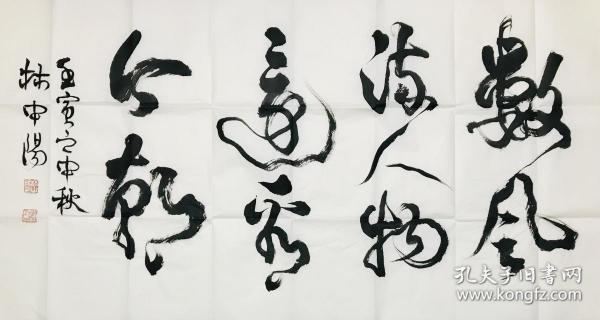 数风
流人物
还看
今朝
壬寅之中秋
林中阳
孔夫子旧书网
www.kongfz.com